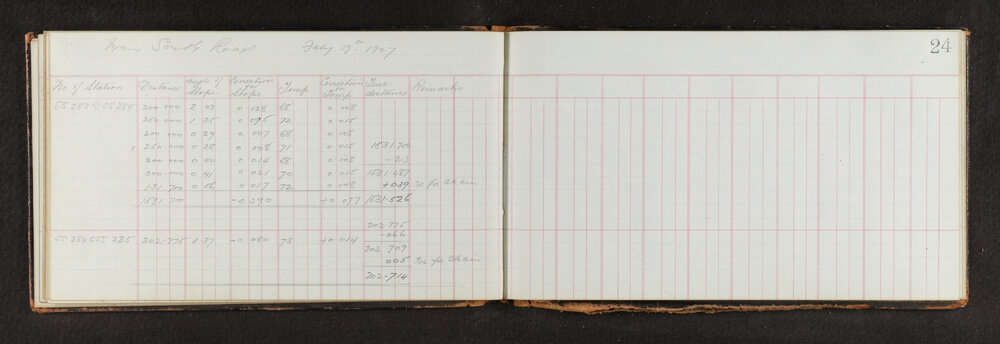 South Road July 17th 1907
24
No of Station Distance Angle of Slope Correction for Slope Temp Correction for Temp True distance Remarks
55 283 to 55 284 200.000 2 03 0.128 68 0 008
250.000 1 35 0 095 72 0 015
200.000 0 29 0 007 68 0 008
250.000 0 28 0 008 71 0 015 1531.710
200.000 0 40 0 014 68 0 008 -213
300.000 0 41 0 021 70 0 015 1531.487
131 700 0 56 0 017 72 0 008 +039 for Chain
1531 700 -0.290 +0 077 1531.526
202 775
-066
55 284 to 55 285 202.775 1 37 -0.080 73 +0.014 202 709
005 for Chain
202.714